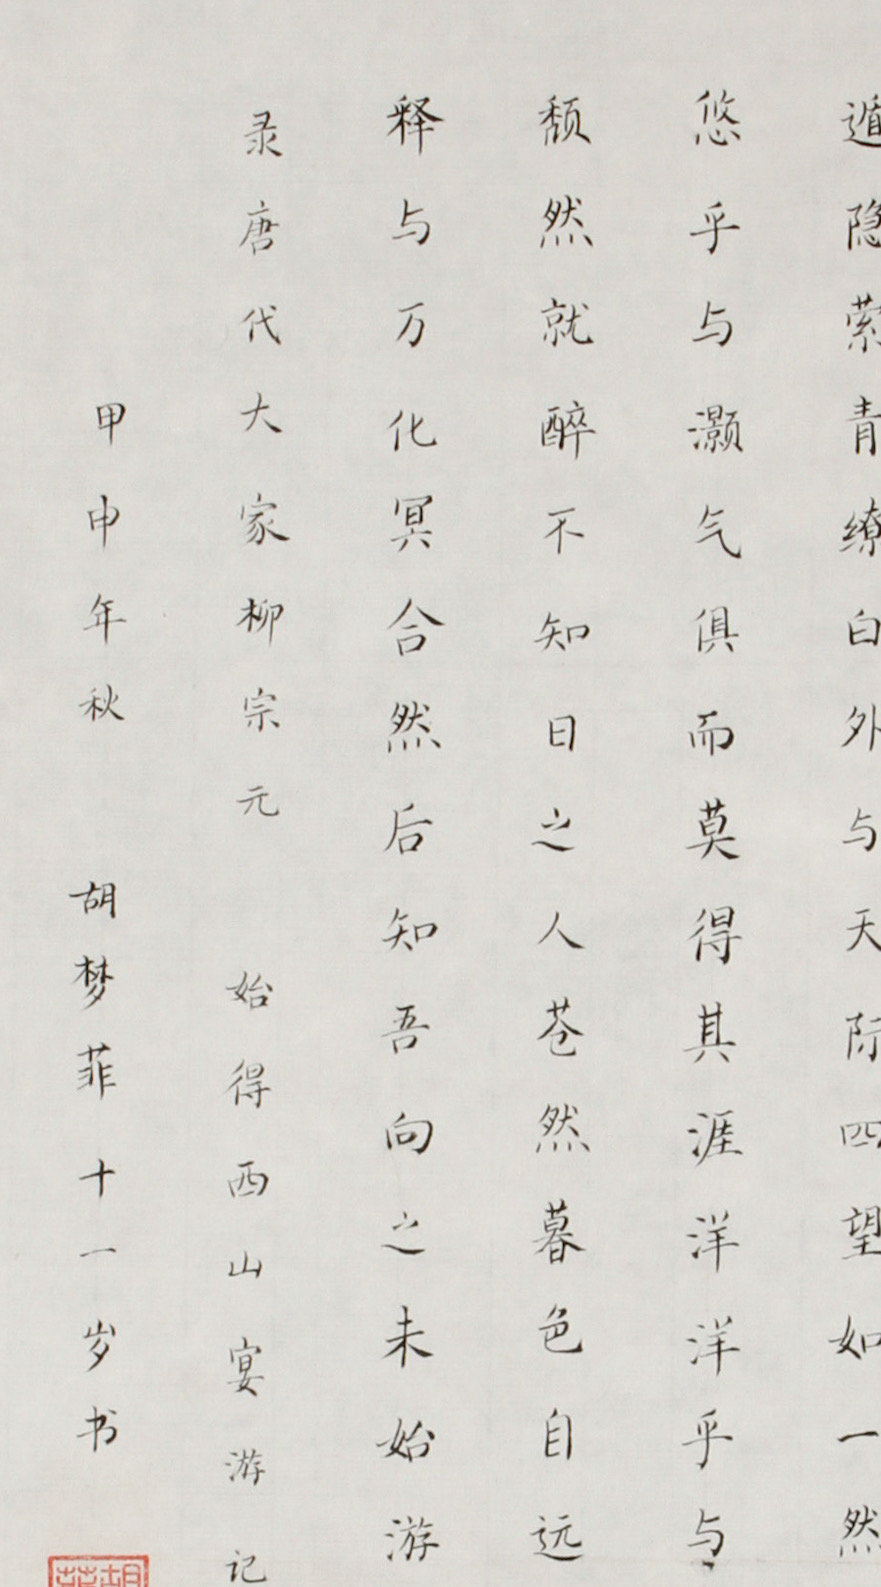 遁隐萦青缭白外与天际四望如一然
悠乎与灏气俱而莫得其涯洋洋乎与
颓然就醉不知日之人苍然暮色自远
释与万化冥合然后知吾向之未始游
录唐代大家柳宗元 始得西山宴游记
甲申年秋 胡梦菲十一岁书